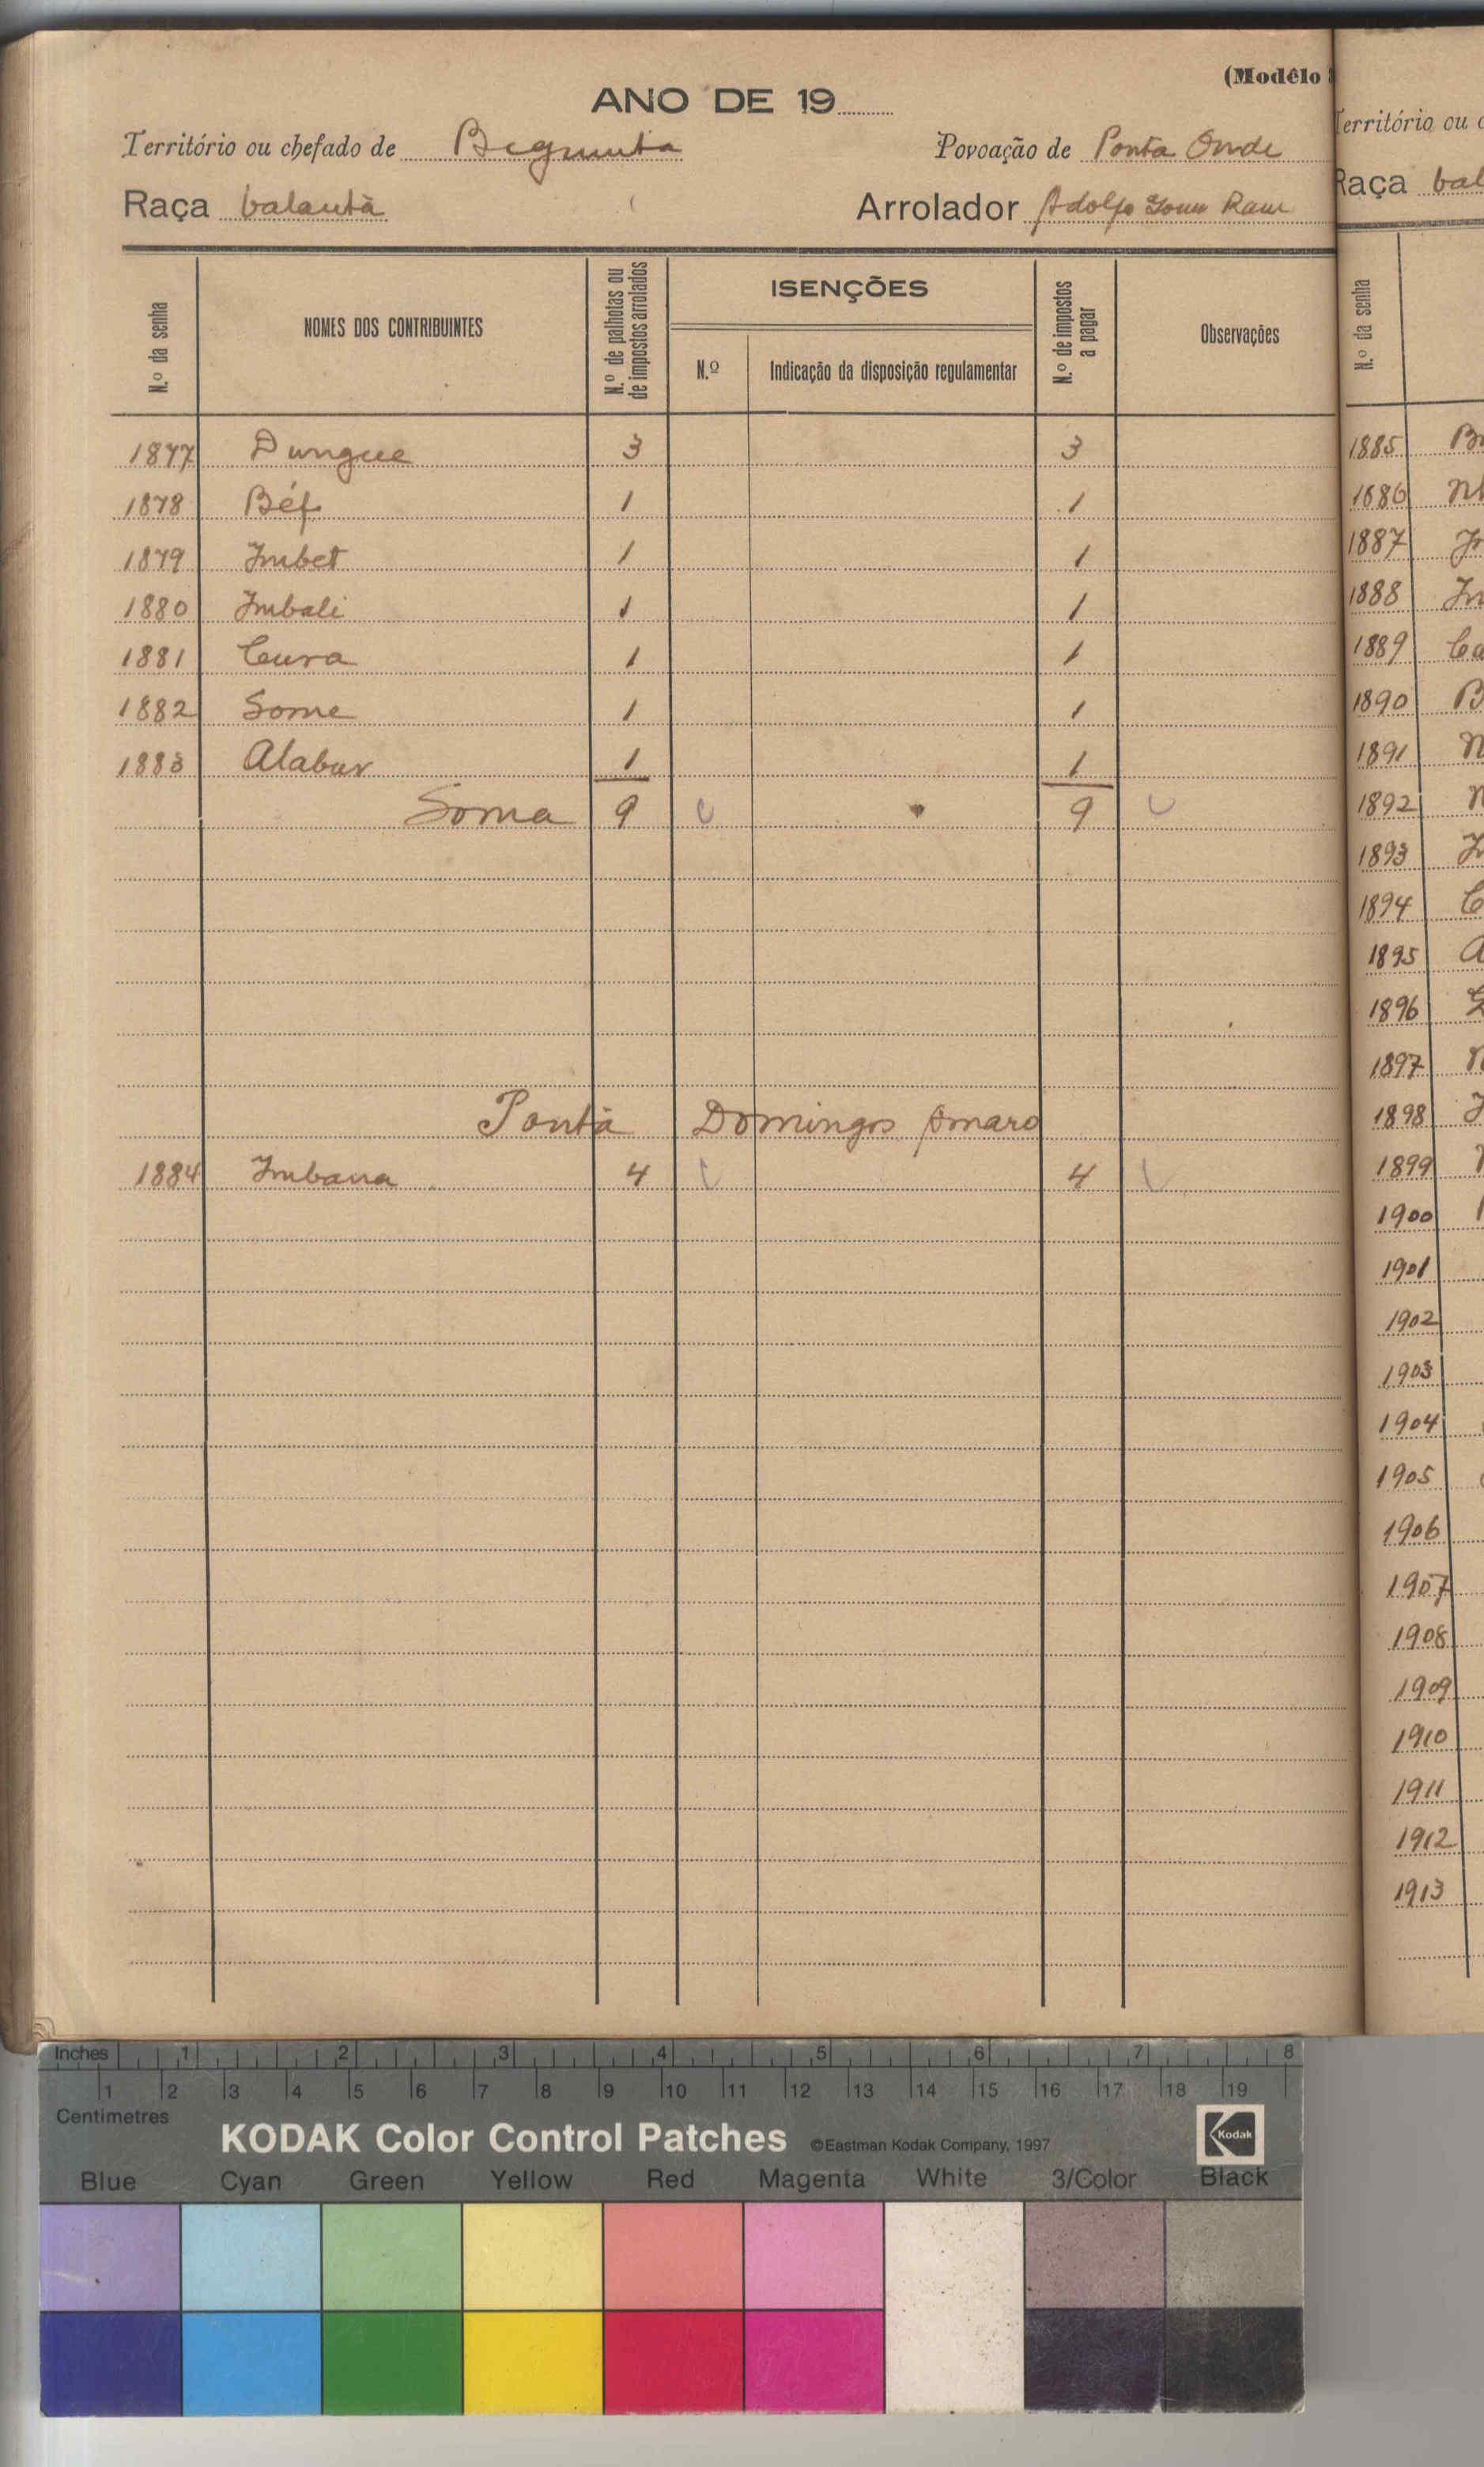 (Modêlo
ANO DE 19
Território ou chefado de Begnunta Povoação de Ponta Onde
Raça balantà Arrolador Adolfo
N.º da senha
NOMES DOS CONTRIBUINTES
N.º de palhotas ou de impostos arrolados
ISENÇÕES
N.º
Indicação da disposição regulamentar
N.º de impostos a pagar
Observações
1877 Dungue 3 3
1878 Béf 1 1
1879 Imbet 1 1
1880 Imbali 1 1
1881 Ceura 1 1
1882 Some 1 1
1883 Alabur 1 1
Soma 9 9
Pontà Domingos Amaro
1884 Imbana 4 4
Território ou
Raça bal
N.º da senha
1885
1886
1887
1888
1889
1890
1891
1892
1893
1894
1895
1896
1897
1898
1899
1900
1901
1902
1903
1904
1905
1906
1907
1908
1909
1910
1911
1912
1913
Inches 1 2 3 4 5 6 7 8
1 2 3 4 5 6 7 8 9 10 11 12 13 14 15 16 17 18 19
Centimetres
KODAK Color Control Patches ©Eastman Kodak Company, 1997 Kodak
Blue Cyan Green Yellow Red Magenta White 3/Color Black